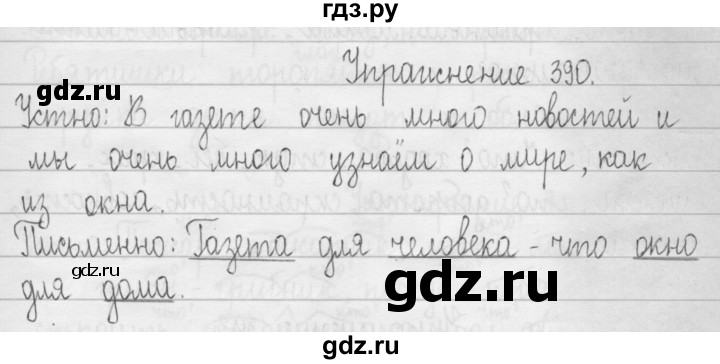 гдз.ру
Упражнение 390.
Устно: В газете очень много новостей и
мы очень много узнаём о мире, как
из окна.
Письменно: Газета для человека - что окно
для дома.
gdz.ru
gdz.ru
gdz.ru
gdz.ru
gdz.ru